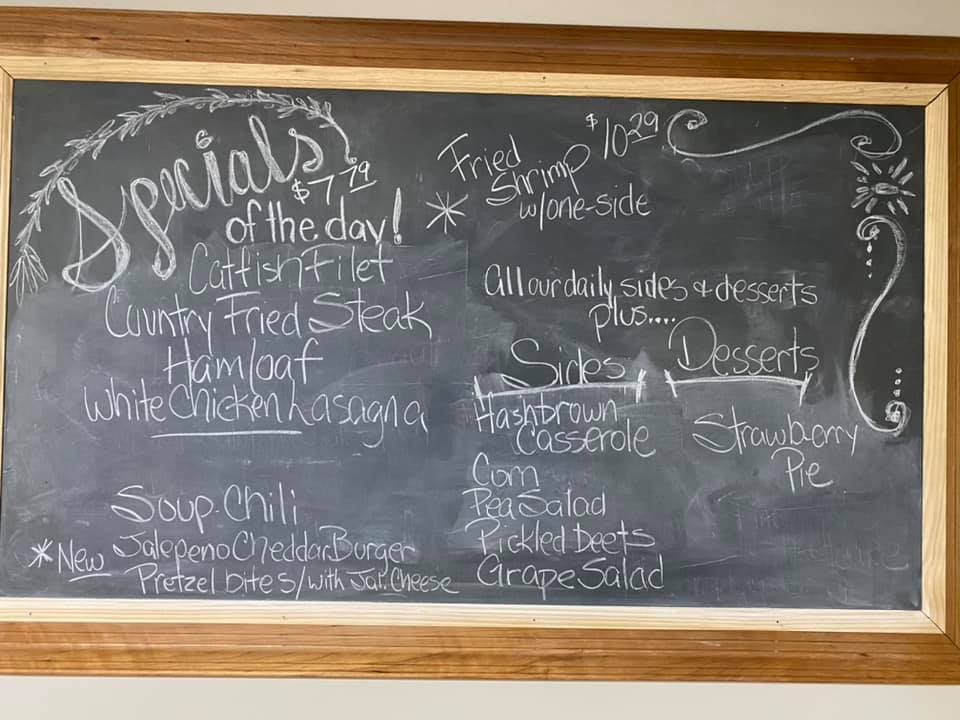 Specials
$7.79
of the day!
Catfish Filet
Country Fried Steak
Hamloaf
White Chicken Lasagna
Soup-Chili
* New Jalepeno Cheddar Burger
Pretzel bites/with Jal. Cheese
$10.29
Fried
Shrimp
* w/one-side
all our daily sides & desserts
plus....
Sides
Hashbrown
Casserole
Corn
Pea Salad
Pickled Beets
Grape Salad
Desserts
Strawberry
Pie